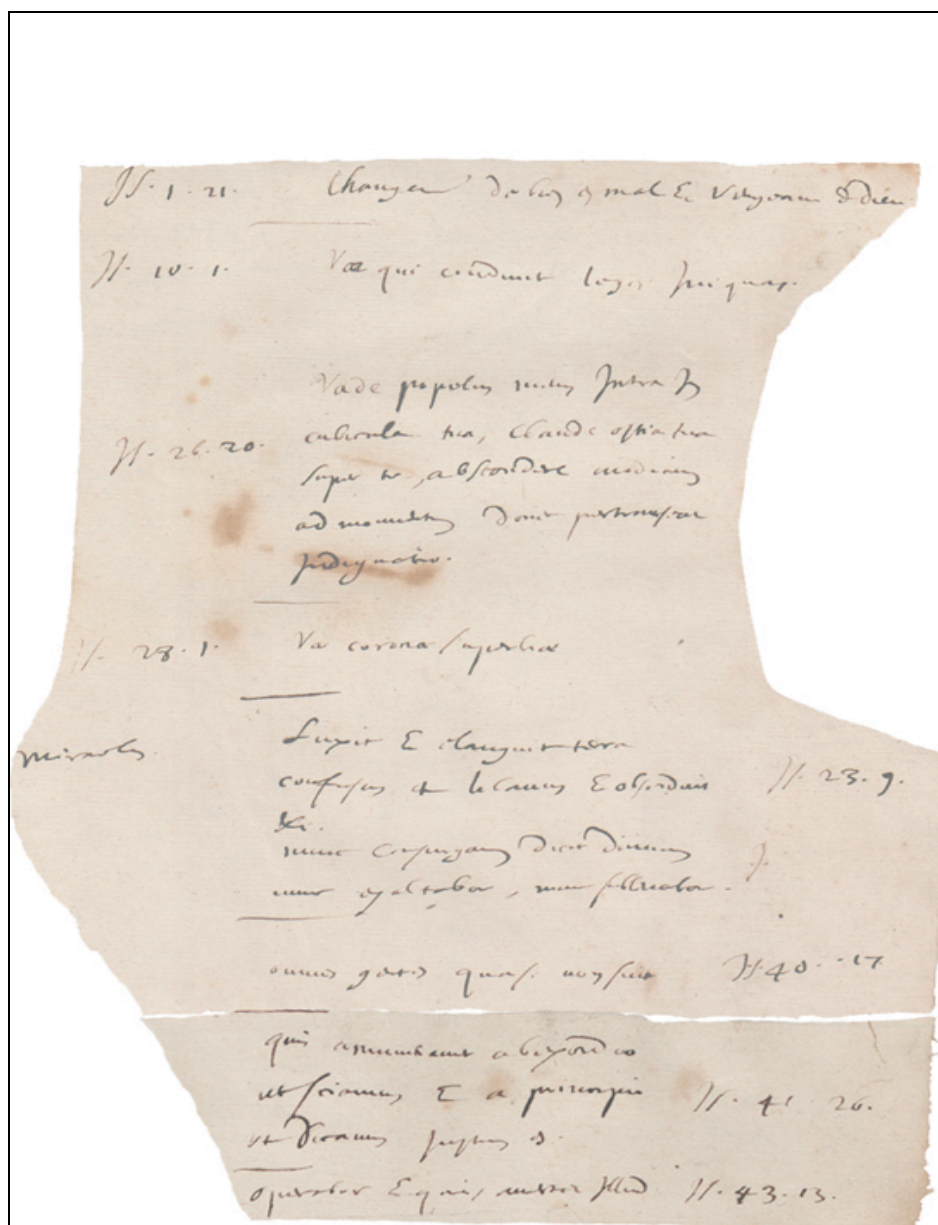 Is. 1. 21. Changem de bien en mal & vengeance de dieu.
Is. 10. 1. Vae qui condunt leges Iniquas.
Vade populus meus Intra In
cubicula tua, claude ostia tua
Is. 26. 20. super te, abscondere modicum
ad momentum donec pertranseat
Indignatio.
Is. 28. 1. Vae coronae superbiae
Miracles. Luxit & elanguit terra
confusus est libanus & obsorduit Is. 33. 9.
&c.
nunc consurgam dicit dominus
nunc exaltabor, nunc sublevabor.
omnes gentes quasi non sint Is. 40. 17
quis annuntiavit ab exordio
ut sciamus & a principio Is. 41. 26.
ut dicamus Iustus es.
operabor & quis avertet Illud Is. 43. 13.